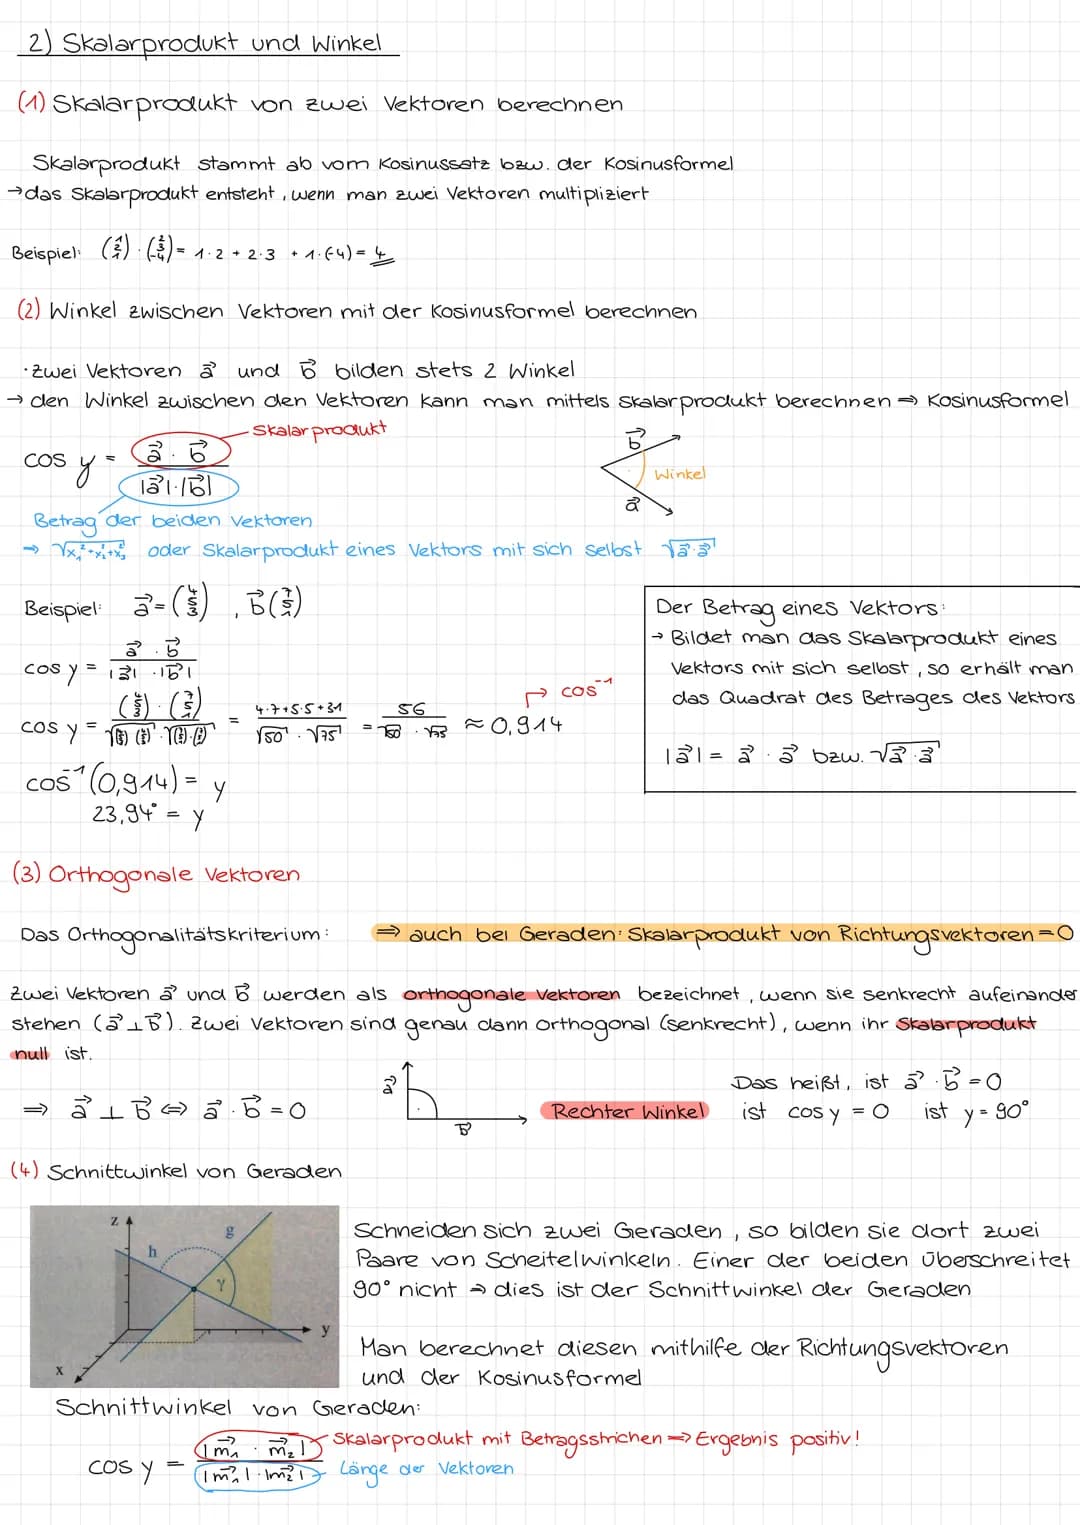 2) Skalarprodukt und Winkel
(1) Skalarprodukt von zwei Vektoren berechnen
Skalarprodukt stammt ab vom Kosinussatz bzw. der Kosinusformel
→ das Skalarprodukt entsteht, wenn man zwei Vektoren multipliziert
Beispiel: (1 2 1) · (2 3 -4) = 1·2 + 2·3 + 1·(-4) = 4
(2) Winkel zwischen Vektoren mit der Kosinusformel berechnen
· zwei Vektoren a⃗ und b⃗ bilden stets 2 Winkel
→ den Winkel zwischen den Vektoren kann man mittels Skalarprodukt berechnen ⇒ Kosinusformel
Skalarprodukt
cos γ = a⃗ · b⃗ / |a⃗|·|b⃗|
b⃗
Winkel
a⃗
Betrag der beiden Vektoren
→ √x₁²+x₂²+x₃² oder Skalarprodukt eines Vektors mit sich selbst √a⃗·a⃗
Beispiel: a⃗ = (4 5 3), b⃗ (7 5 1)
cos γ = a⃗ · b⃗ / |a⃗| · |b⃗|
cos γ = (4 5 3) · (7 5 1) / √(4 5 3)·(4 5 3) · √(7 5 1)·(7 5 1) = 4·7+5·5+3·1 / √50 · √75 = 56 / √50 · √75 ≈ 0,914
→ cos⁻¹
cos⁻¹(0,914) = γ
23,94° = γ
Der Betrag eines Vektors:
→ Bildet man das Skalarprodukt eines
Vektors mit sich selbst, so erhält man
das Quadrat des Betrages des Vektors
|a⃗| = a⃗ · a⃗ bzw. √a⃗·a⃗
(3) Orthogonale Vektoren
Das Orthogonalitätskriterium: ⇒ auch bei Geraden: Skalarprodukt von Richtungsvektoren = 0
Zwei Vektoren a⃗ und b⃗ werden als orthogonale Vektoren bezeichnet, wenn sie senkrecht aufeinander
stehen (a⃗⊥b⃗). Zwei Vektoren sind genau dann orthogonal (senkrecht), wenn ihr Skalarprodukt
null ist.
⇒ a⃗ ⊥ b⃗ ⇔ a⃗ · b⃗ = 0
a⃗
b⃗
Rechter Winkel
Das heißt, ist a⃗ · b⃗ = 0
ist cos γ = 0 ist γ = 90°
(4) Schnittwinkel von Geraden
z
g
h
γ
y
x
Schneiden sich zwei Geraden, so bilden sie dort zwei
Paare von Scheitelwinkeln. Einer der beiden überschreitet
90° nicht → dies ist der Schnittwinkel der Geraden
Man berechnet diesen mithilfe der Richtungsvektoren
und der Kosinusformel
Schnittwinkel von Geraden:
cos γ = |m⃗₁ · m⃗₂| / |m⃗₁| · |m⃗₂|
Skalarprodukt mit Betragsstrichen ⇒ Ergebnis positiv!
Länge der Vektoren